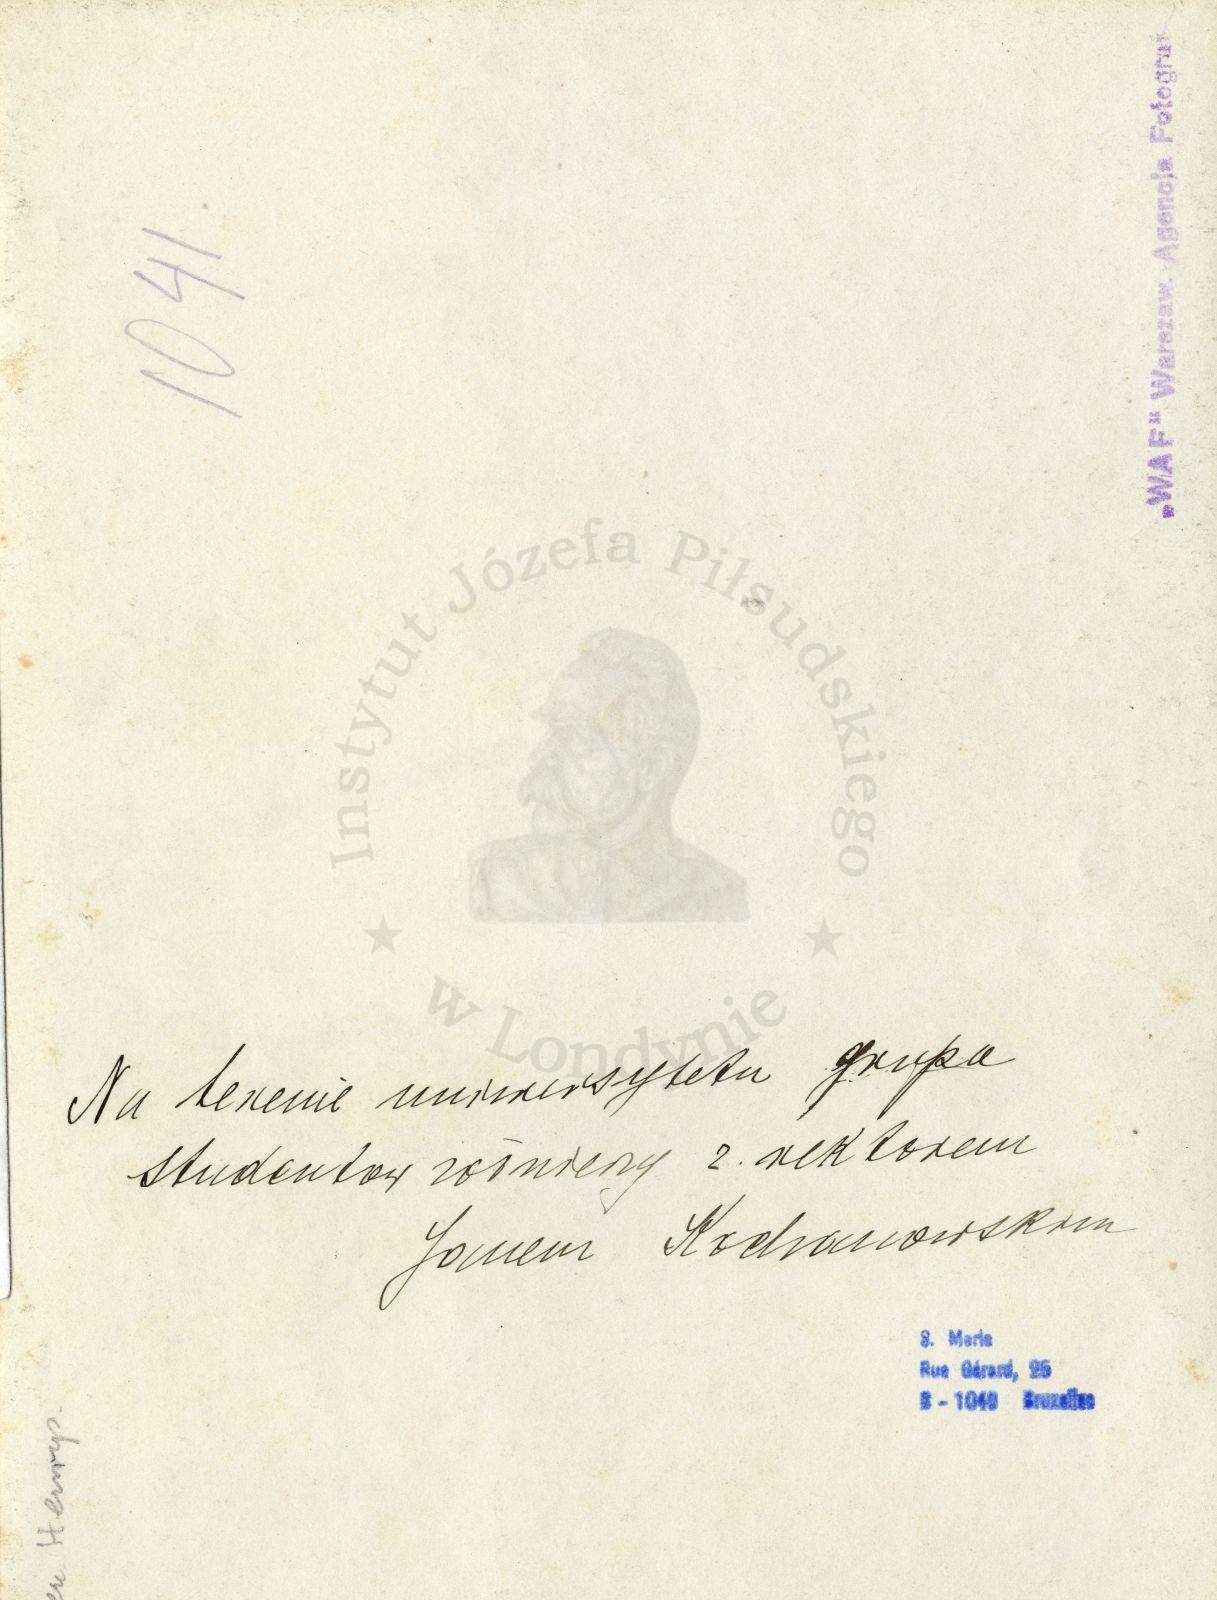 1041
„WAF" Warszaw. Agencja Fotogra
Instytut Józefa Piłsudskiego
w Londynie
Na terenie uniwersytetu grupa
studentów z rektorem
Janem Kochanowskim
S. Merle
Rue Gérard, 25
B - 1040 Bruxelles